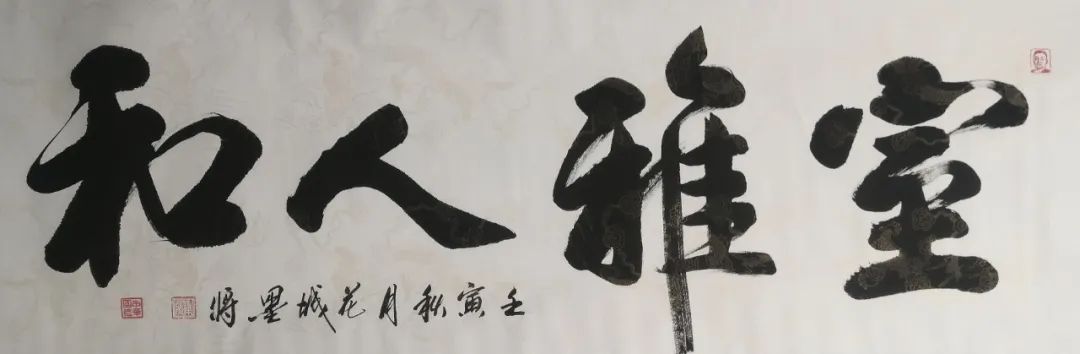 室雅人和
壬寅秋月花城墨将